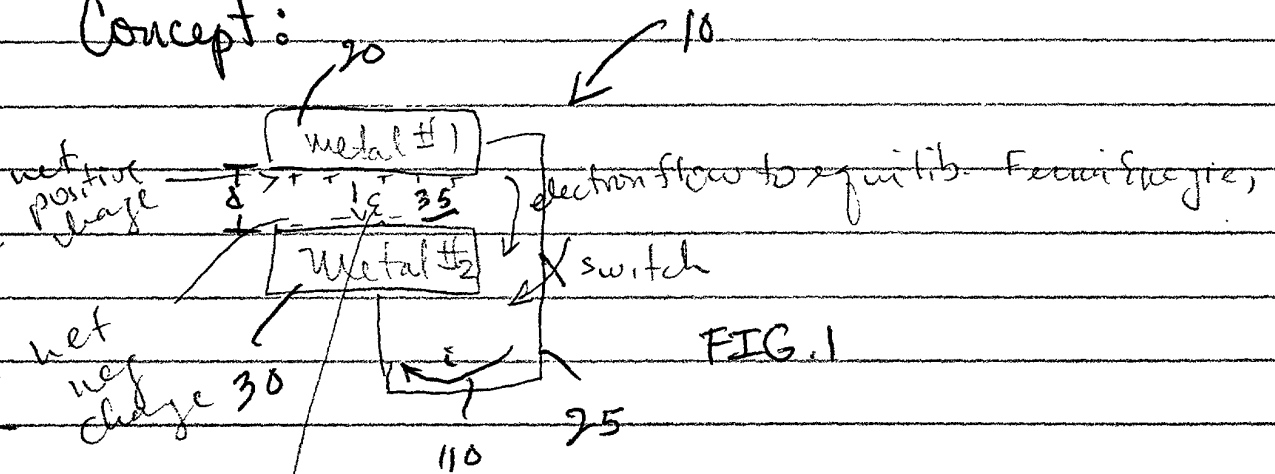 Concept:
20
10
metal #1
net
positive
charge
d
+ + + + +
ε
35
electron flow to equilib. Fermi Energie,
- - - -
Metal #2
switch
net
neg
charge
30
i
FIG. 1
25
110